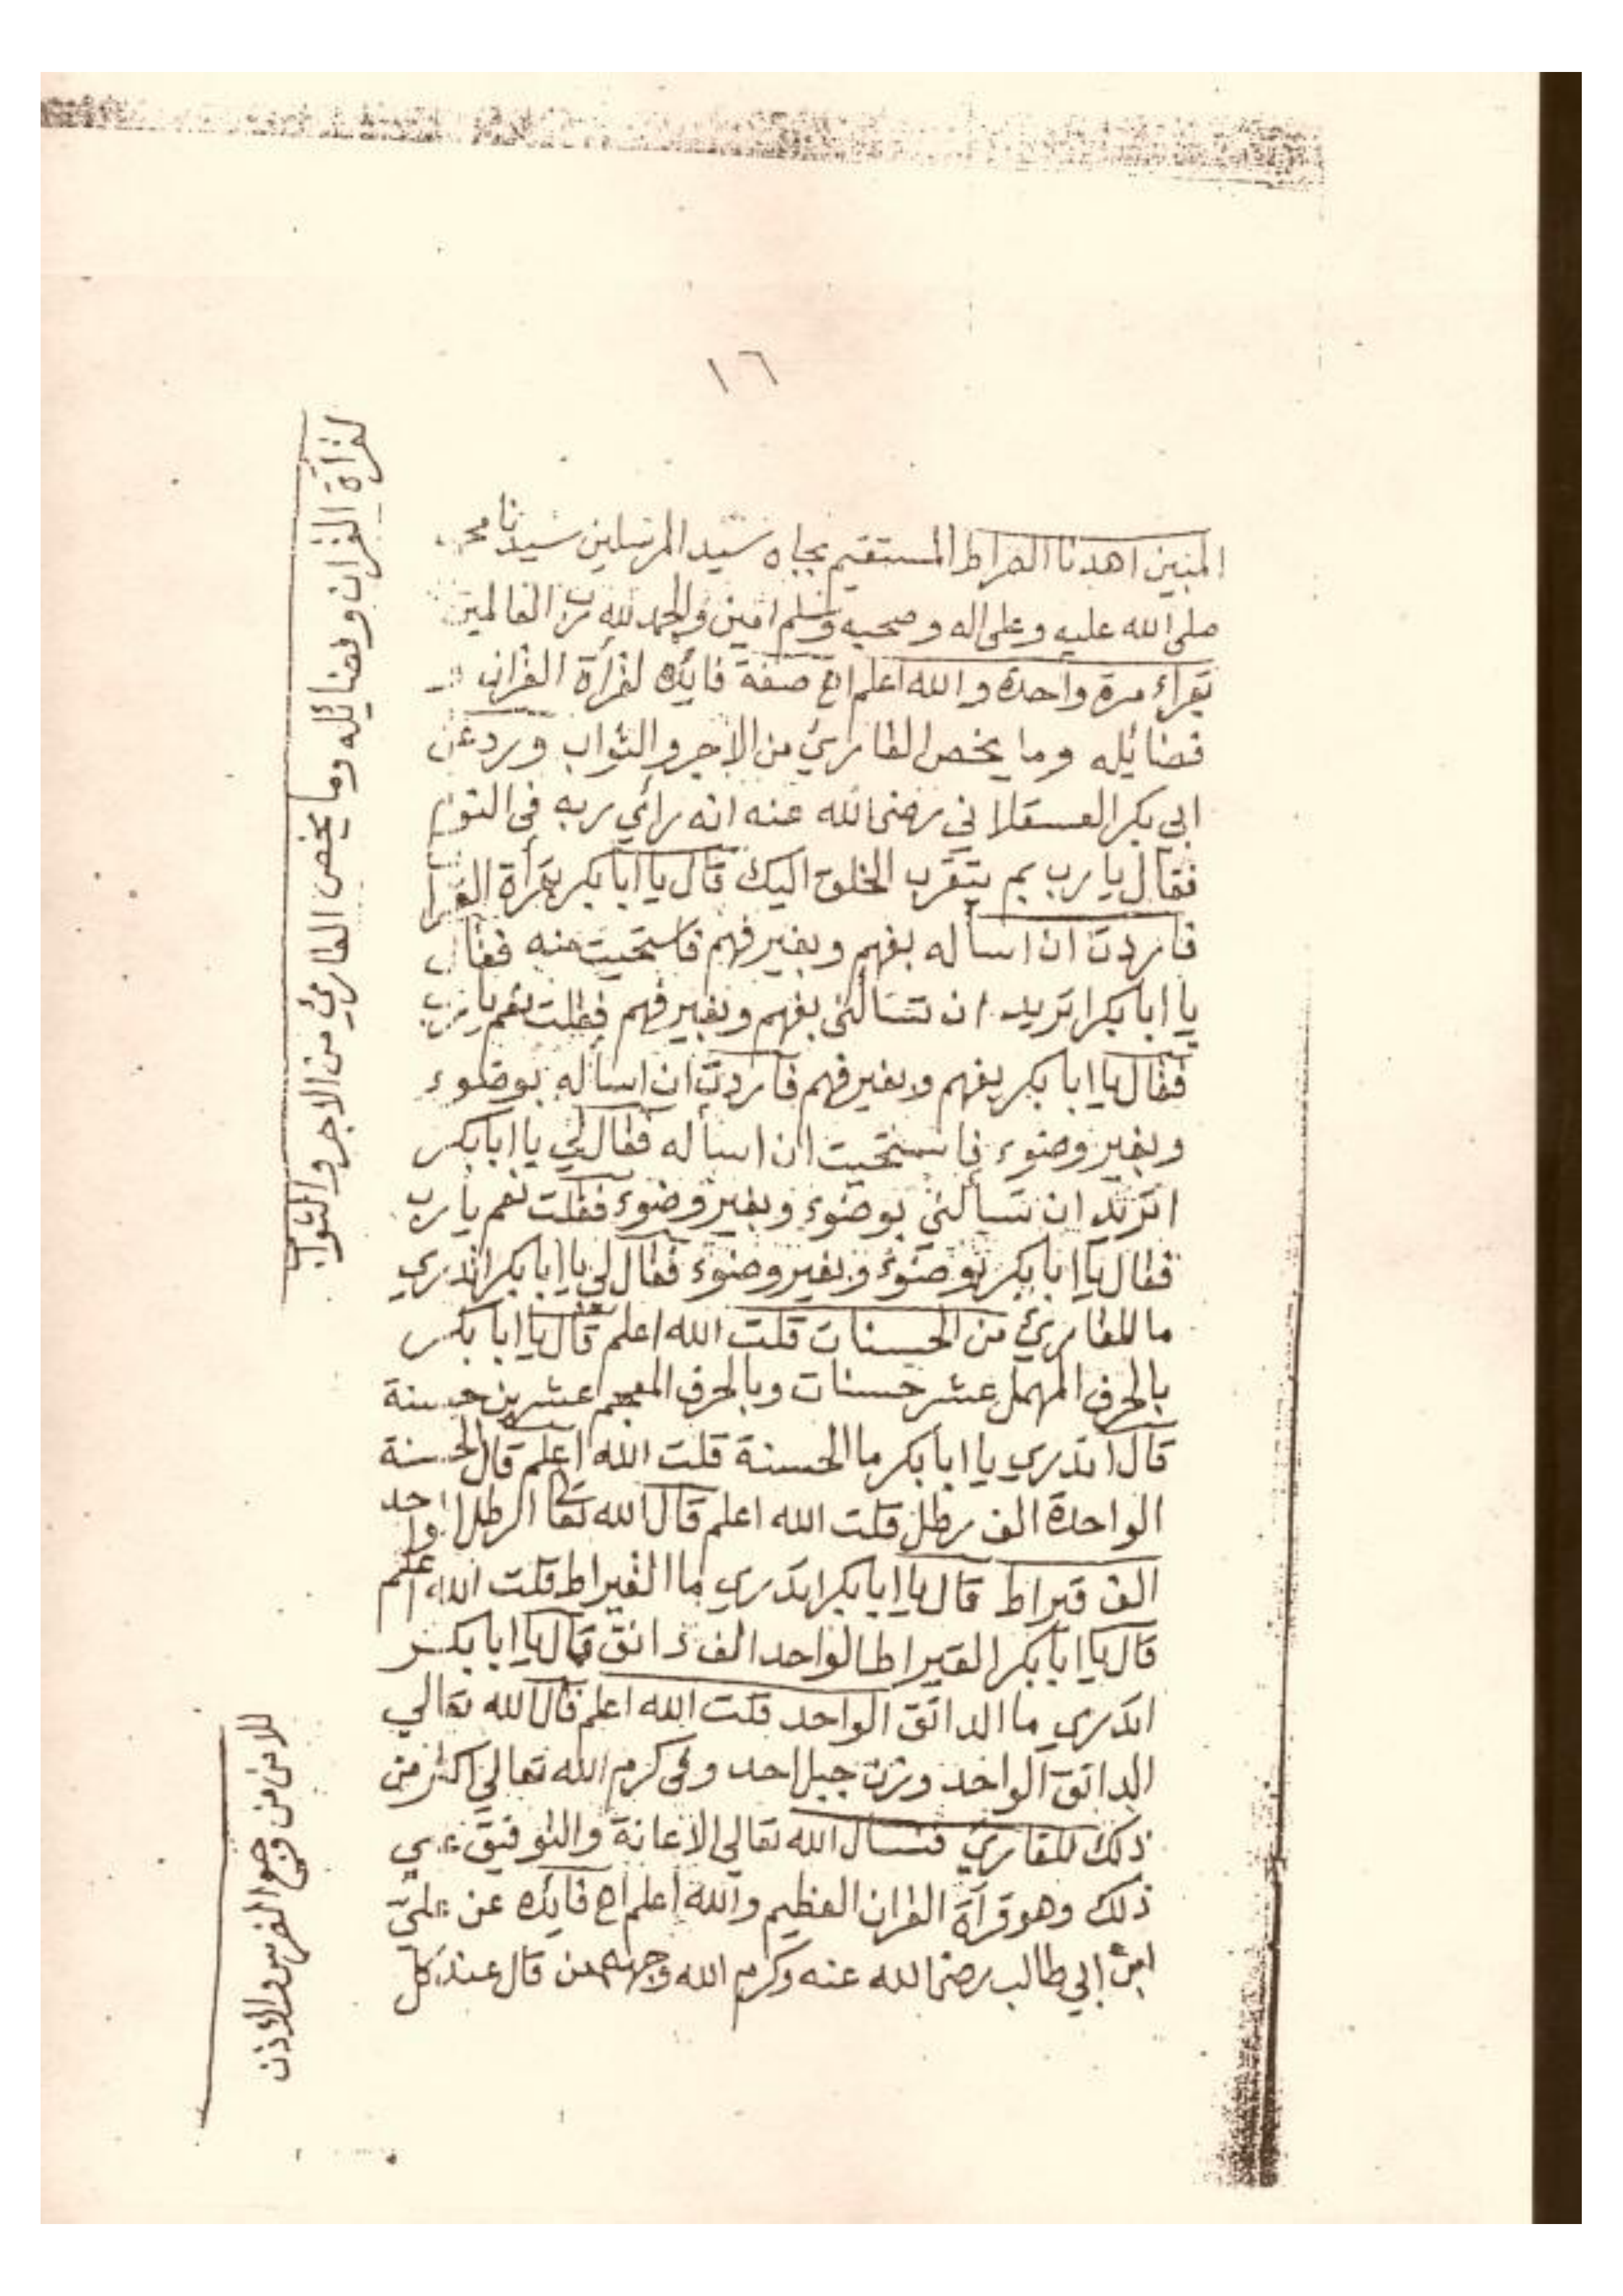 ١٦
المبين اهدنا الصراط المستقيم بجاه سيد المرسلين سيدنا محمد
صلى الله عليه وعلى اله وصحبه وسلم امين والحمد لله رب العالمين
تقراء مرة واحدة والله اعلم اھ صفة فايده لقرأة القران
فضائله وما يخص القاريء من الاجر والثواب ورد عن
ابي بكر العسقلاني رضى الله عنه انه رأي ربه فى النوم
فقال يا رب بم يتقرب الخلق اليك قال يا ابا بكر بقرأة القرا
فاردت ان اسأله بفهم وبغير فهم فاستحيت منه فقال
يا ابا بكر اتريد ان تسالنى بفهم وبغير فهم فقلت نعم يا رب
فقال يا ابا بكر بفهم وبغير فهم فاردت ان اسأله بوضوء
وبغير وضوء فاستحيت ان اسأله فقال لي يا ابا بكر
اتريد ان تسألني بوضوء وبغير وضوء فقلت نعم يا رب
فقال يا ابا بكر بوضوء وبغير وضوء فقال لي يا ابا بكر اتدري
ما للقاريء من الحسنات قلت الله اعلم قال يا ابا بكر
بالحرف المهمل عشر حسنات وبالحرف المعجم عشرين حسنة
قال اتدري يا ابا بكر ما الحسنة قلت الله اعلم قال الحسنة
الواحدة الف رطل قلت الله اعلم قال الله تعا الرطل الواحد
الف قيراط قال يا ابا بكر اتدري ما القيراط قلت الله اعلم
قال يا ابا بكر القيراط الواحد الف دانق قال يا ابا بكر
اتدري ما الدانق الواحد قلت الله اعلم قال الله تعالي
الدانق الواحد وزن جبل احد وفى كرم الله تعالي اكثر من
ذلك للقاري فنسال الله تعالي الاعانة والتوفيق علي
ذلك وهو قرآة القران العظيم والله اعلم اھ فايده عن علي
ابن ابي طالب رضى الله عنه وكرم الله وجهه من قال عند كل
لقرأة القران وفضائله وما يخص القاريء من الاجر والثواب
للامن من وجع الضرس والاذن